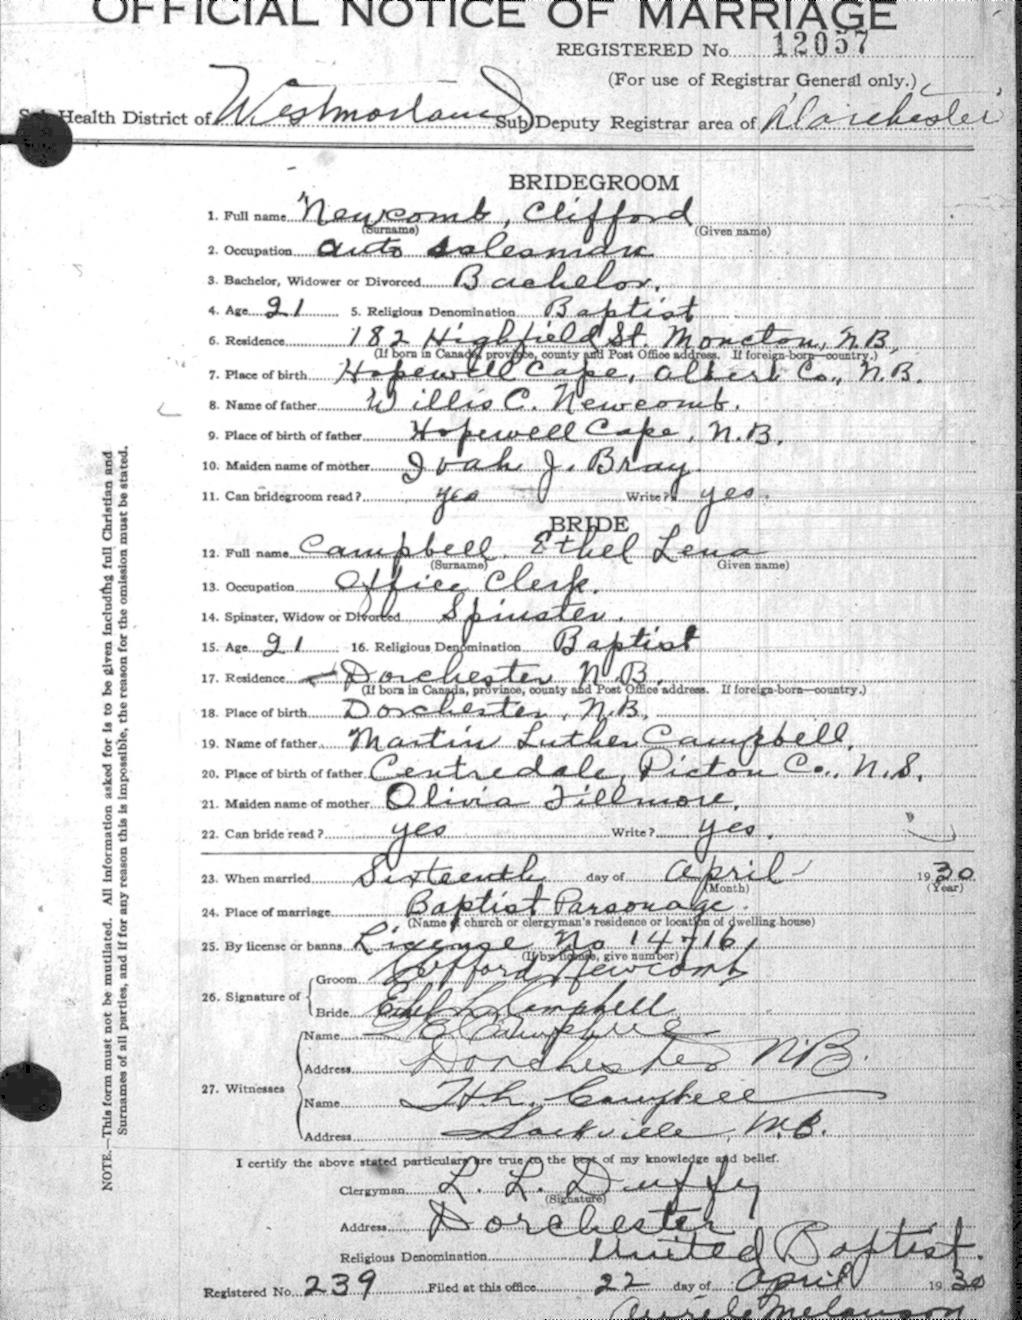 OFFICIAL NOTICE OF MARRIAGE
REGISTERED No. 12057
(For use of Registrar General only.)
Sub-Health District of Westmorland Sub-Deputy Registrar area of Dorchester
BRIDEGROOM
1. Full name Newcomb, Clifford
(Surname) (Given name)
2. Occupation auto salesman
3. Bachelor, Widower or Divorced Bachelor.
4. Age 21 5. Religious Denomination Baptist
6. Residence 182 Highfield St. Moncton, N.B.,
(If born in Canada, province, county and Post Office address. If foreign-born—country.)
7. Place of birth Hopewell Cape, Albert Co., N.B.
8. Name of father Willis C. Newcomb.
9. Place of birth of father Hopewell Cape, N.B.
10. Maiden name of mother Ivah J. Bray.
11. Can bridegroom read? yes Write? yes.
BRIDE
12. Full name Campbell, Ethel Lena
(Surname) Given name)
13. Occupation Office Clerk.
14. Spinster, Widow or Divorced Spinster.
15. Age 21 16. Religious Denomination Baptist
17. Residence Dorchester N.B.
(If born in Canada, province, county and Post Office address. If foreign-born—country.)
18. Place of birth Dorchester, N.B.
19. Name of father Martin Luther Campbell.
20. Place of birth of father Centredale, Picton Co., N.S.
21. Maiden name of mother Olivia Fillmore.
22. Can bride read? yes Write? yes.
23. When married Sixteenth day of April 1930
(Month) (Year)
24. Place of marriage Baptist Parsonage.
(Name of church or clergyman's residence or location of dwelling house)
25. By license or banns License No 14716
(If by license, give number)
26. Signature of Groom Clifford Newcomb
Bride Ethel L. Campbell
27. Witnesses
Name Campbell
Address Dorchester N.B.
Name H.L. Campbell
Address Sackville, N.B.
I certify the above stated particulars are true to the best of my knowledge and belief.
Clergyman L. L. Duffy
(Signature)
Address Dorchester
Religious Denomination United Baptist.
Registered No. 239 Filed at this office 22 day of April 1930
Aurele Melanson
NOTE.—This form must not be mutilated. All information asked for is to be given including full Christian and
Surnames of all parties, and if for any reason this is impossible, the reason for the omission must be stated.